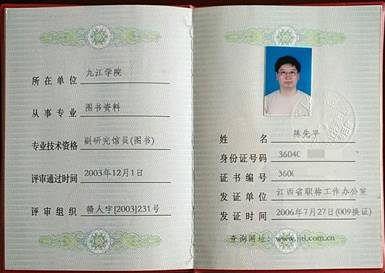 所在单位 九江学院
从事专业 图书资料
专业技术资格 副研究馆员(图书)
评审通过时间 2003年12月1日
评审组织 赣人字[2003]231号
姓名 陈先平
身份证号码 3604
证书编号 360
发证单位 江西省职称工作办公室
发证时间 2006年7月27日(009换证)
查询网址:www.jjtl.com.cn